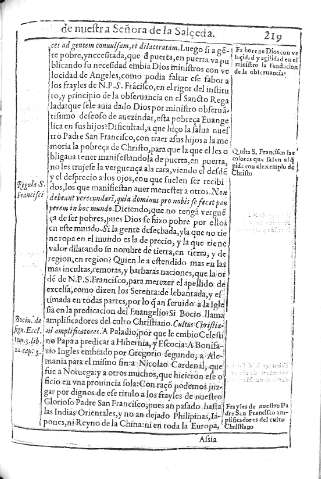 de nuestra Señora de la Salceda.
219
ces ad gentem conuulsam, et dilaceratam. Luego si a gẽ
te pobre, y necessitada, que d̃ puerta, en puerta va pu
blicando su necesidad embia Dios ministros con ve
locidad de Angeles, como podia faltar ese fabor a
los frayles de N.P.S. Frãcisco, en el rigor del institu
to, y principio de la obseruancia en el Sancto Rega
lad̃ar que sele auia dado Dios por ministro obserüa
tisimo deseoso de auezindar, esta pobreça Euange
lica en sus hijos? Dificultad, a que hiço la salua nues
tro Padre San Francisco, con traer a sus hijos a la me
moria la pobreça de Christo, para que la que el les o
bligaua tener manifestandola de puerta, en puerta,
no les truxese la verguença ala cara, viendo el desdẽ
y el desprecio a los ojos, con que suelen ser recibi
dos, los que manifiestan auer menester a otros. Non
debeant verecundari, quia dominus pro nobis se fecit pau
perem in hoc mundo. Diciendo, que no tengã vergue
ça de ser pobres, pues Dios se hizo pobre por ellos
en este mundo. Si la gente desechada, y la que no tie
ne ropa en el mundo es la de precio, y la que tiene
valor dilatando su nombre de tierra, en tierra, y de
region, en region? Quien le a estendido mas en las
mas incultas, remotas, y barbaras naciones, que la or
dẽ de N.P.S. Francisco, para merecer el apellido de
excelsa, como dizen los Setenta: de lebantada, y es
timada en todas partes, por lo q̃ an seruido a la Igle
sia en la predicacion del Euangelio? Si Bocio llama
amplificadores del culto Christiano. Cultus Christia-
ni amplificatores. A Paladio, por que le embio Celesti
no Papa a predicar a Hibernia, y Escocia: A Bonifa-
cio Ingles embiado por Gregorio segundo, a Ale-
mania para el mismo fin: a Nicolao Cardenal, que
fue a Noruega: y a otros muchos, que hicieron ese o
ficio en vna prouincia sola: Con raçõ podemos juz-
gar por dignos de ese titulo a los frayles de nuestro
Glorioso Padre San Francisco, pues an pasado hasta
las Indias Orientales, y no an dejado Philipinas, Ia-
pones, ni Reyno de la China: ni en toda la Europa,
Assia
Faborece Dios con ve
locidad y agilidad en el
ministro la fundacion
de la obseruancia.
Quita S. Francisco las
colores que salen al
con el exemplo de
Christo
Regula S.
Francisci
Bocio. de
sign. Eccl.
Frayles de nuestro Pa
dre San Francisco am-
plificadores del culto
Christiano